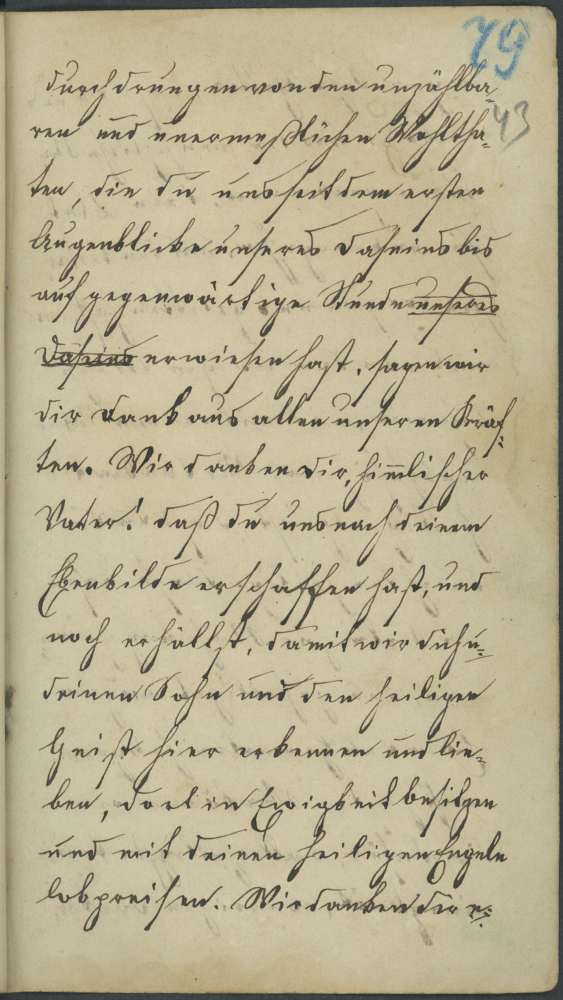 79
43
durchdrungen von den unzählba-
ren und unermeßlichen Wohltha-
ten, die du uns seit dem ersten
Augenblicke unseres Daseins bis
auf gegenwärtige Stunde unseres
Daseins erwiesen hast, sagen wir
dir Dank aus allen unseren Kräf-
ten. Wir danken dir, him̄lischer
Vater! daß du uns nach deinem
Ebenbilde erschaffen hast, und
noch erhällst, damit wir dich u:
deinen Sohn und den heiligen
Geist hier erkennen und lie-
ben, dort in Ewigkeit besitzen
und mit deinen heiligen Engeln
lobpreisen. Wir danken dir e: